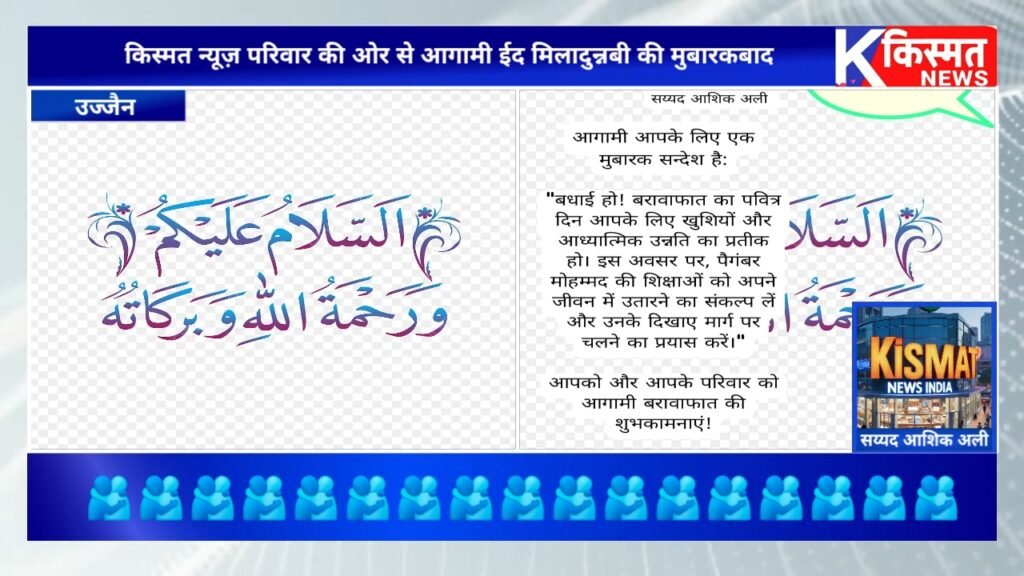 किस्मत न्यूज़ परिवार की ओर से आगामी ईद मिलादुन्नबी की मुबारकबाद
किस्मत
NEWS
उज्जैन
اَلسَّلَامُ عَلَيْكُمْ
وَرَحْمَةُ اللهِ وَبَرَكَاتُهُ
सय्यद आशिक अली
आगामी आपके लिए एक
मुबारक सन्देश है:
"बधाई हो! बरावाफात का पवित्र
दिन आपके लिए खुशियों और
आध्यात्मिक उन्नति का प्रतीक
हो। इस अवसर पर, पैगंबर
मोहम्मद की शिक्षाओं को अपने
जीवन में उतारने का संकल्प लें
और उनके दिखाए मार्ग पर
चलने का प्रयास करें।"
आपको और आपके परिवार को
आगामी बरावाफात की
शुभकामनाएं!
KiSMAT
NEWS INDIA
सय्यद आशिक अली